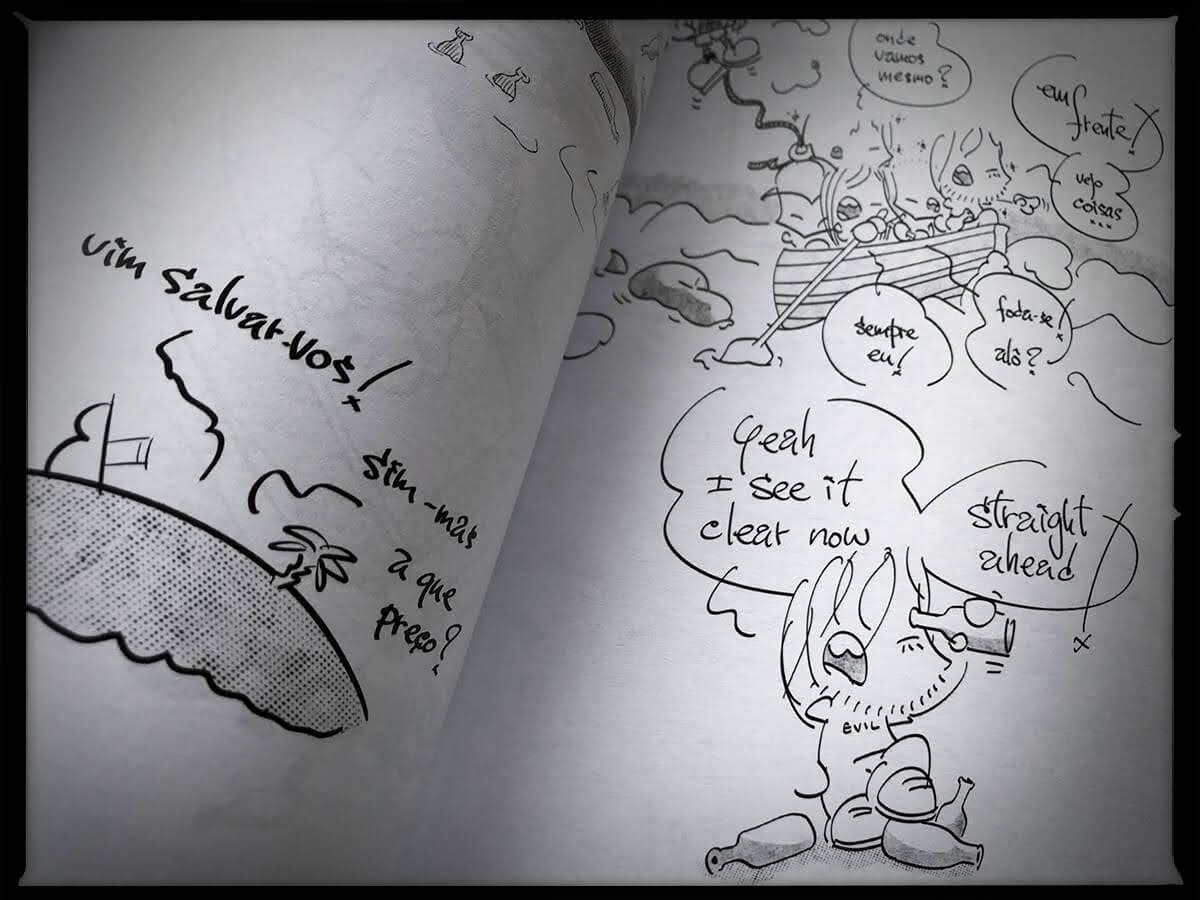 vim salvar-vos!
sim - mas
a que
preço?
onde
vamos
mesmo?
em
frente!
vejo
coisas
...
sempre
eu!
foda-se!
alô?
yeah
I see it
clear now
straight
ahead!
EVIL